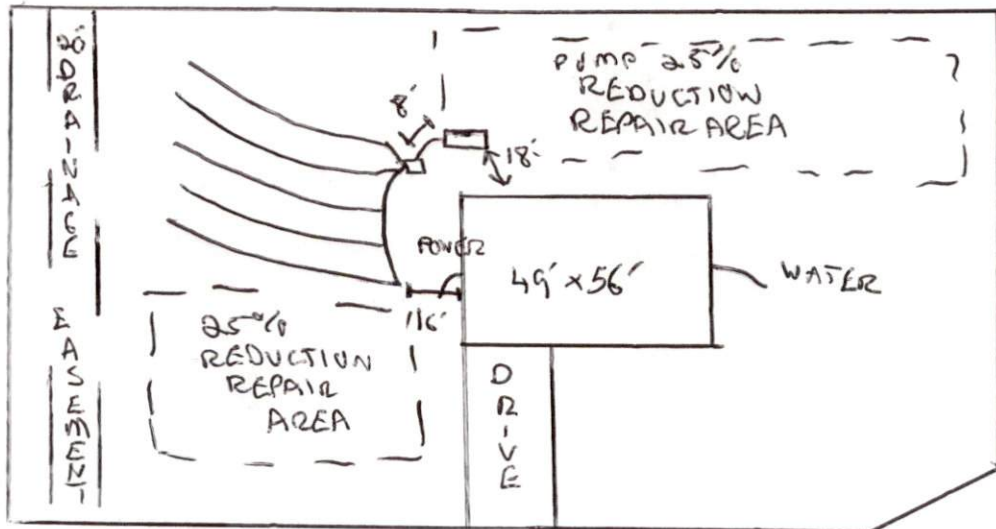 20' DRAINAGE EASEMENT
PUMP 25%
REDUCTION
REPAIR AREA
8'
18'
POWER
49' x 56'
WATER
16'
25%
REDUCTION
REPAIR
AREA
DRIVE